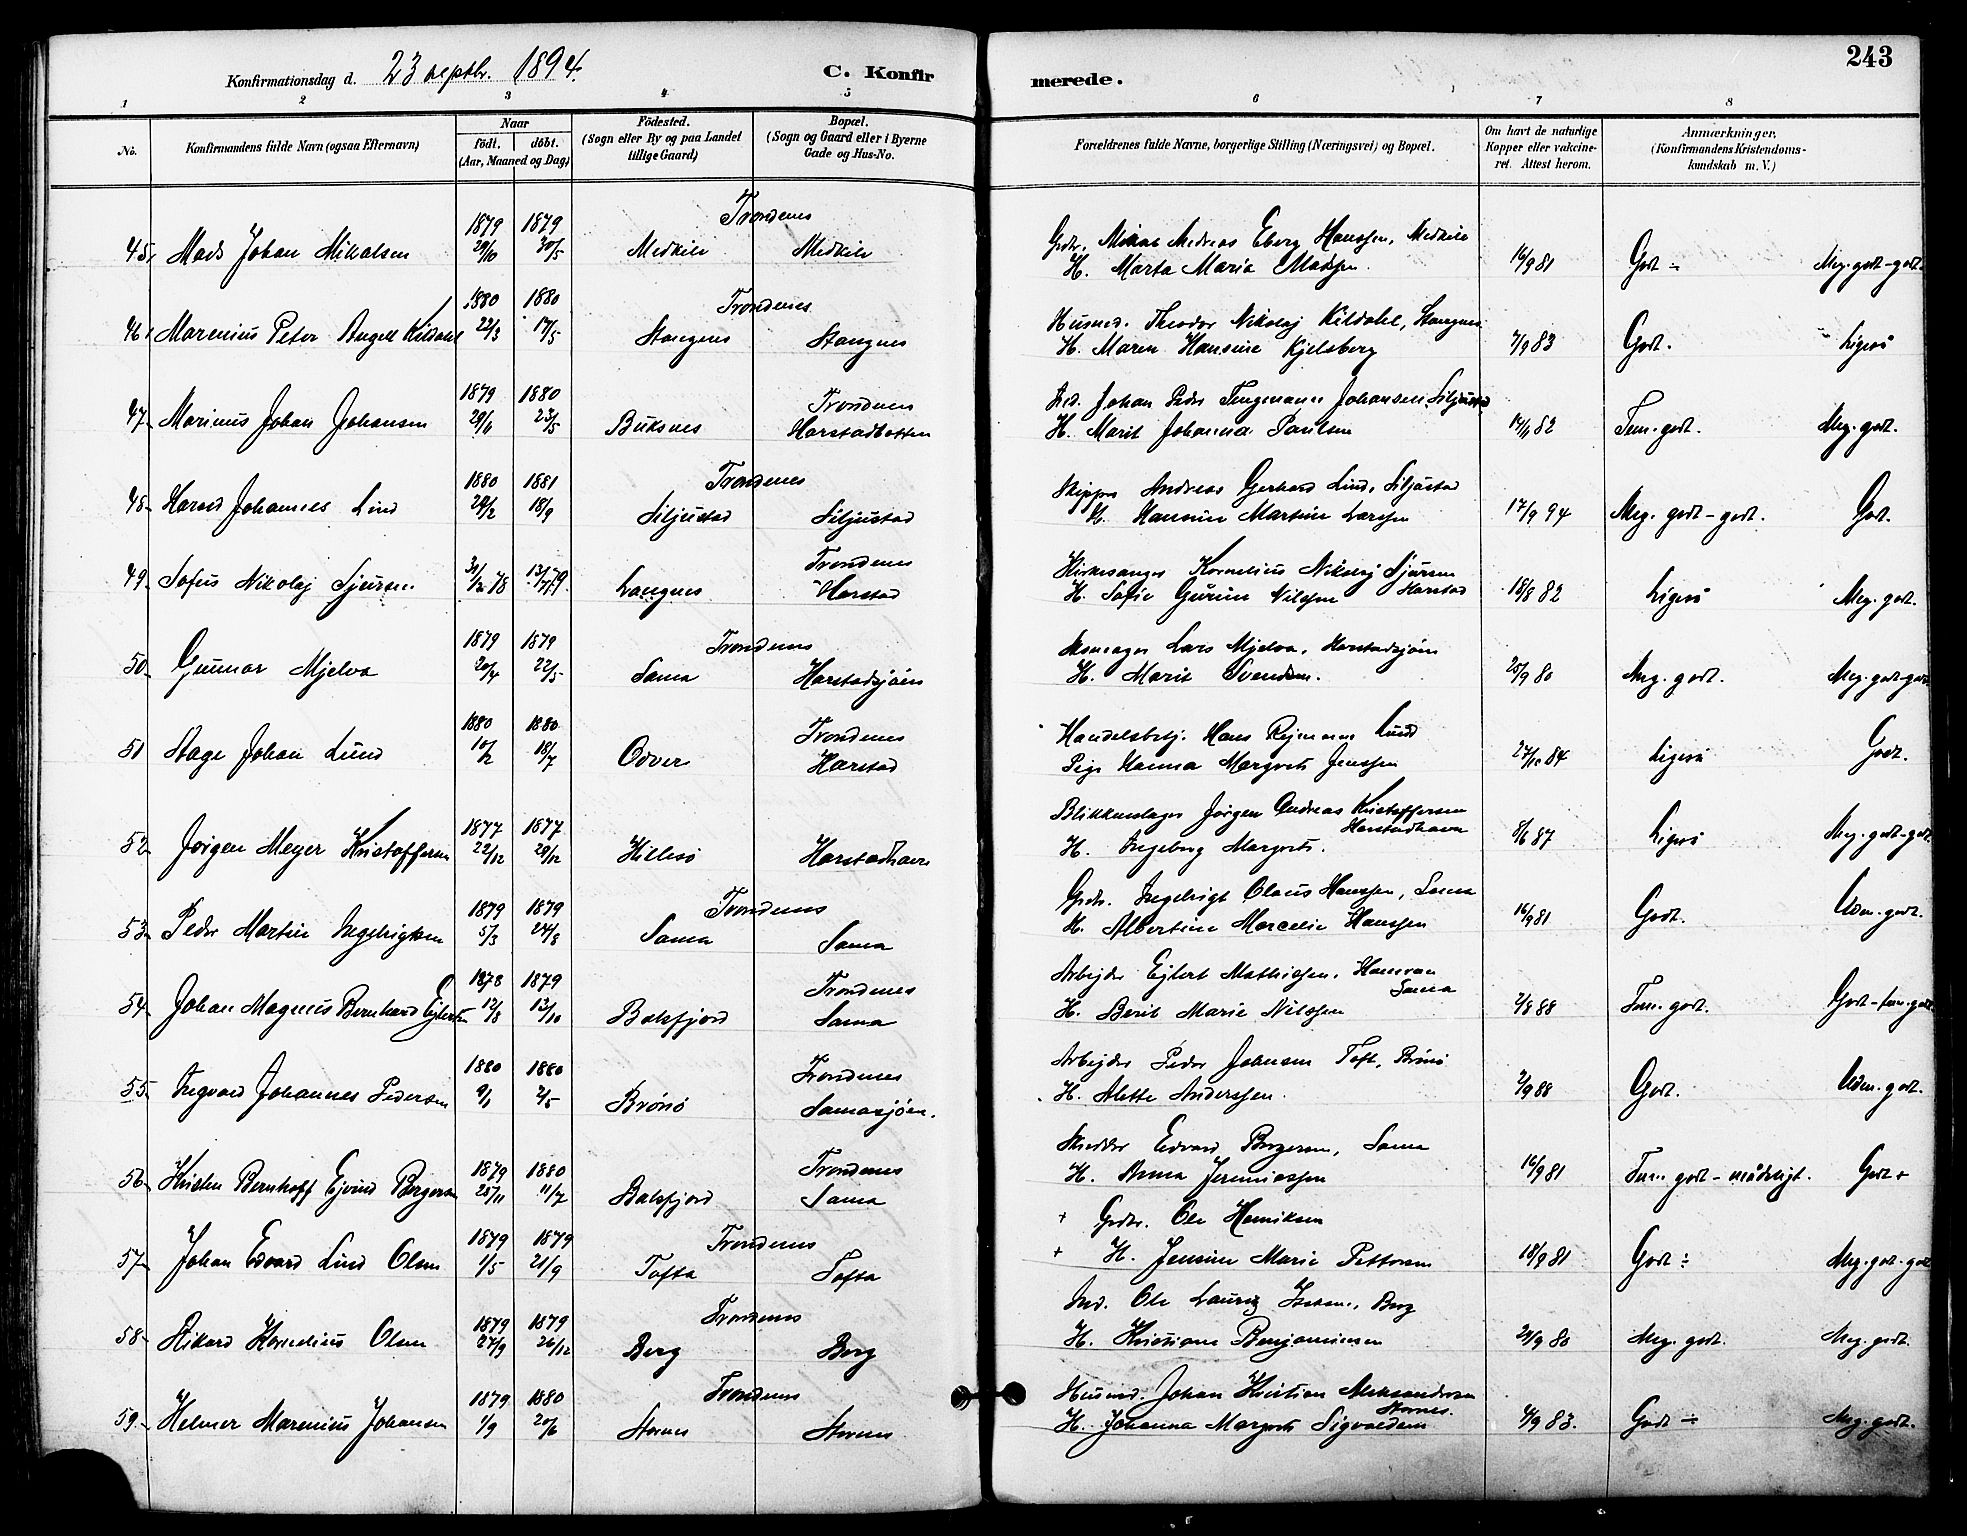 243
Konfirmationsdag d. 23 septbr. 1894. C. Konfirmerede.
1 2 3 4 5 6 7 8
No. Konfirmandens fulde Navn (ogsaa Efternavn) Naar födt. döbt. (Aar, Maaned og Dag) Födested. (Sogn eller By og paa Landet tillige Gaard) Bopæl. (Sogn og Gaard eller i Byerne Gade og Hus-No. Forældrenes fulde Navne, borgerlige Stilling (Næringsvei) og Bopæl. Om havt de naturlige Kopper eller vaccineret. Attest herom. Anmærkninger, (Konfirmandens Kristendomskundskab m. V.)
1879 1879 Trondenes
45, Mads Johan Mikalsen 29/10 30/5 Medkile Medkile Gbr. Mikal Andreas Eberg Hanssen, Medkile
H. Marta Maria Madssen 16/9 81 Godt ÷ Meg. godt-godt.
1880 1880 Trondenes
46, Marenius Peter Angell Kildahl 22/3 17/5 Stangnes Stangnes Husmd. Theodor Nikolaj Kildahl, Stangnes
H. Maren Hansine Kjelsberg 7/9 83 Godt. Ligeså
1879 1880 Trondenes
47, Marinus Johan Johansen 29/6 23/5 Buksnes Harstadbotten Ind. Johan Peder Tengemann Johansen, Siljustad
H. Marit Johanna Paulsen 14/6 82 Tem. godt. Meg. godt.
1880 1881 Trondenes
48, Harald Johannes Lind 29/2 18/9 Siljustad Siljustad Skipper Andreas Gerhard Lind, Siljustad
H. Hansine Martine Larssen 17/9 94 Meg. godt - godt. Godt.
49, Sofus Nikolaj Sjursen 31/12 78 13/7 79 Langnes Trondenes Harstad Kirkesanger Kornelius Nikolaj Sjursen
H. Sofie Gurine Nilssen Harstad 18/8 82 Ligeså Meg. godt.
1879 1879 Trondenes
50, Gunnar Mjelva 20/4 22/5 Sama Harstadsjöen Skomager Lars Mjelva, Harstadsjöen
H. Marit Svendsen. 25/9 80 Meg. godt. Meg. godt-godt
1880 1880 Trondenes
51 Aage Johan Lund 10/2 18/7 Odver Harstad Handelsbetj. Hans Rejmann Lund
Pige Hanna Margrete Jenssen 27/10 84 Ligeså Godt.
1877 1877
52, Jörgen Meyer Kristoffersen 22/12 29/12 Hillesö Harstadhavn Blikkenslager Jörgen Andreas Kristoffersen Harstadhavn
H. Ingeborg Margrete. 8/6 87 Ligeså Meg. godt-godt.
1879 1879 Trondenes
53, Peder Martin Ingebrigtsen 5/3 24/8 Sama Sama Gbr. Ingebrigt Olaus Hanssen, Sama
H. Albertine Marcelie Hanssen 16/9 81 Godt. Udm. godt.
1878 1879 Trondenes
54, Johan Magnus Bernhard Ejlertsen 12/8 12/10 Balsfjord Sama Arbejder Ejlert Mathissen, Sama
H. Berit Marie Nilssen 2/8 88 Tem. godt. Godt-tem. godt
1880 1880 Trondenes
55, Ingvald Johannes Pedersen 9/1 2/5 Brönö Samasjöen. Arbejder Peder Johansen Toft, Brönö
H. Alette Anderssen. 2/9 88 Godt. Udm. godt.
1879 1880 Trondenes
56, Kristen Bernhoff Ejvind Bergersen 25/11 11/7 Balsfjord Sama Skrædder Edvard Bergersen, Sama
H. Anna Jeremiassen 16/9 81 Tem. godt - mådeligt. Godt +
1879 1879 Trondenes
57, Johan Edvard Lind Olsen 1/5 21/9 Tofta Tofta + Gbr. Ole Henriksen
+ H. Jensine Marie Pettersen 18/9 81 Godt ÷ Meg. godt-godt
1879 1879 Trondenes
58, Rikard Kornelius Olsen 27/9 26/12 Berg Berg Ind. Ole Lauritz Isaksen, Berg
H. Kristiane Benjaminsen 21/9 80 Meg. godt. Meg. godt.
1879 1880 Trondenes
59, Helmer Marenius Johansen 1/9 20/6 Stornes Stornes Husmd. Johan Kristian Aleksandersen Stornes.
H. Johanna Margrete Sigvaldsen 4/9 83. Godt ÷ Meg. godt.